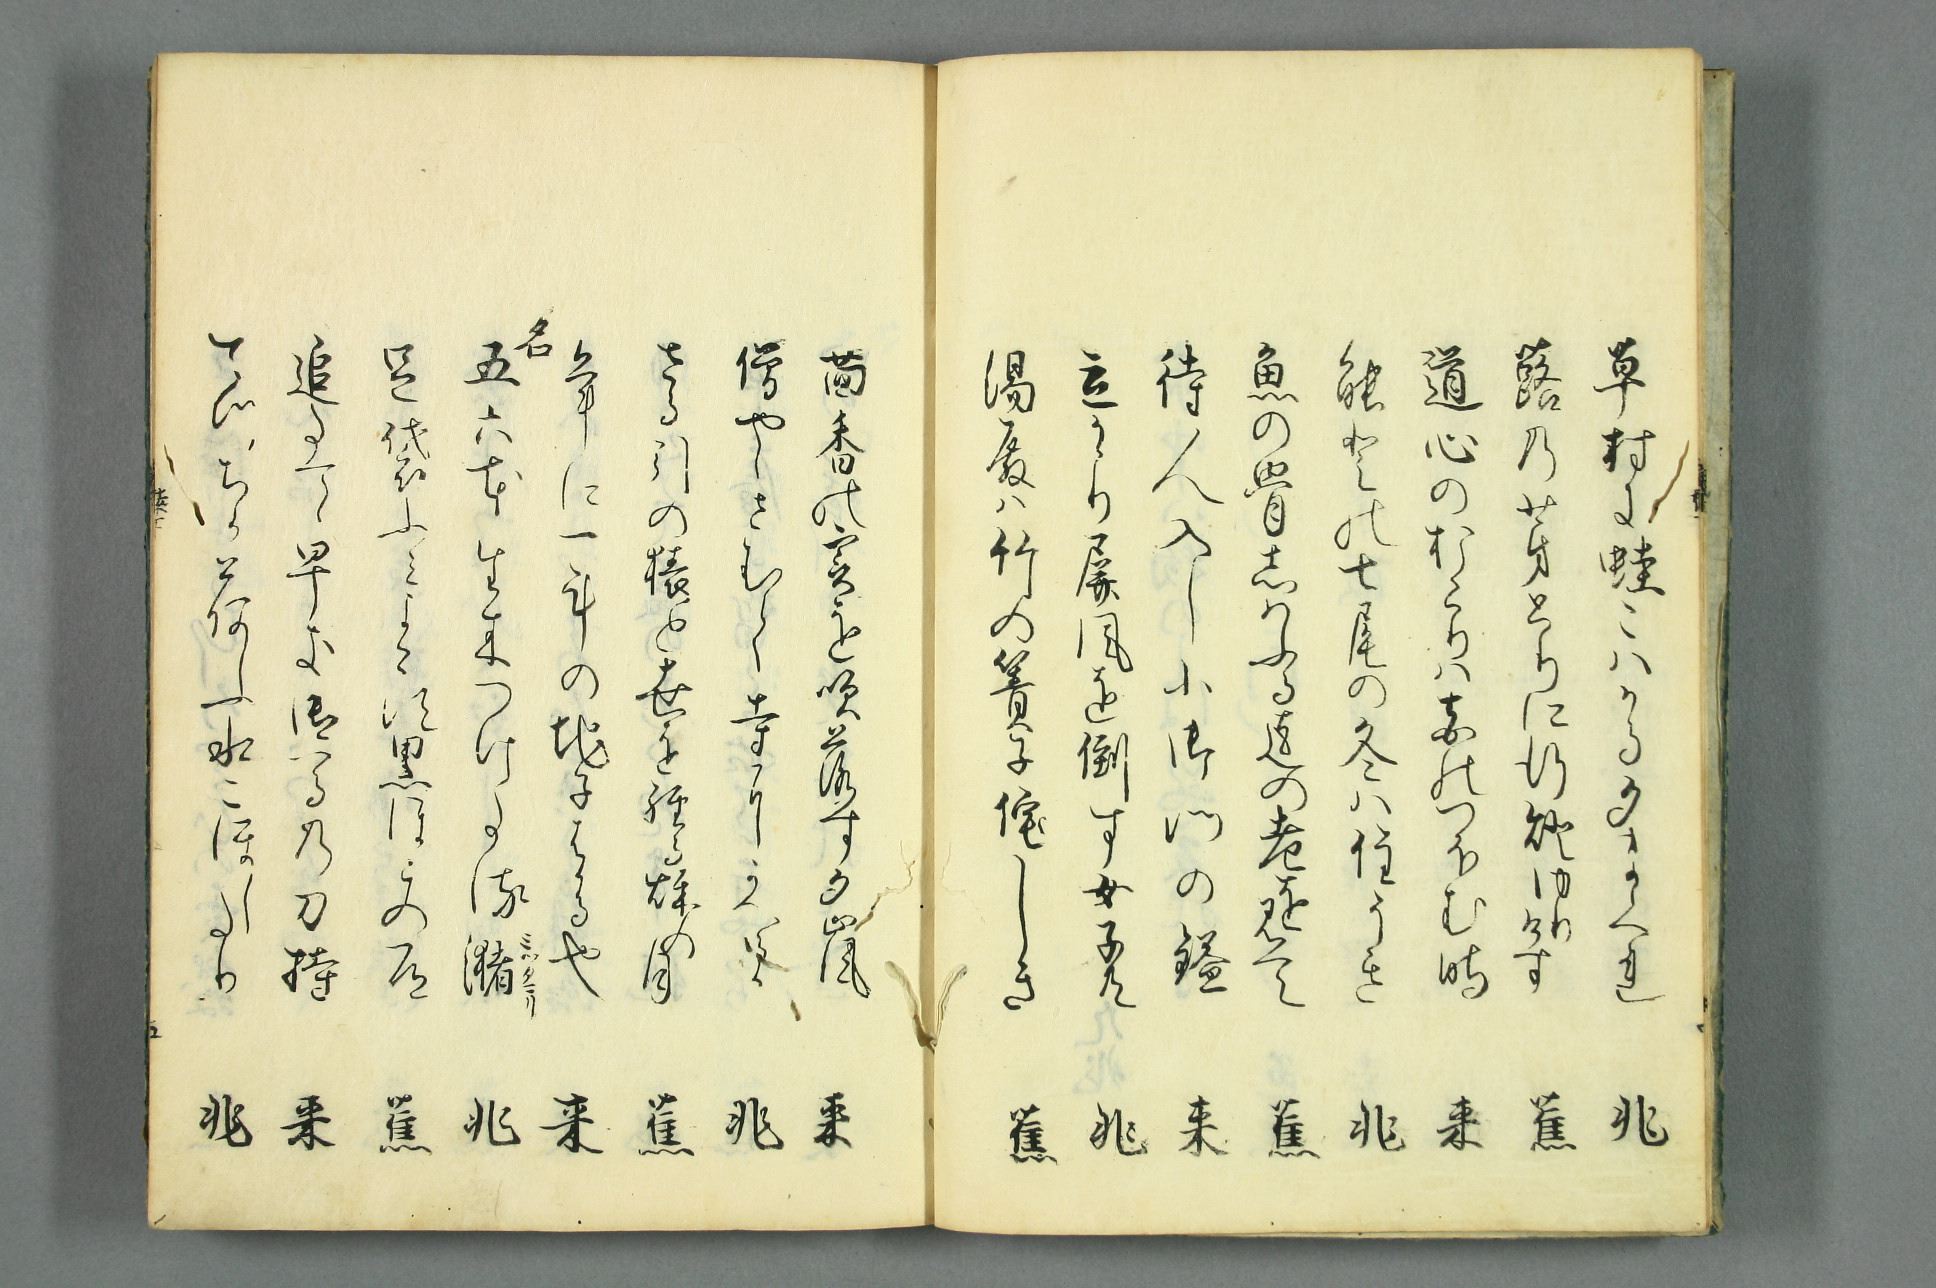 草村に蛙こはかる夕まくれ　兆
蕗の芽とりに行燈ゆりけす　蕉
道心のおこりは花のつほむ時　来
能登の七尾の冬は住うき　兆
魚の骨しはふる迄の老を見て　蕉
待人入し小御門の鎰　来
立かゝり屏風を倒す女子共　兆
湯殿は竹の簀子侘しき　蕉
茴香の実を吹落す夕嵐　来
僧やゝさむく寺にかへるか　兆
さる引の猿と世を経る秋の月　蕉
名
年に一斗の地子はかる也　来
五六本生木つけたる潴　兆
ミツタマリ
足袋ふみよこす黒ほこの道　蕉
追たてゝ早き御馬の刀持　来
てつちか荷ふ水こほしたり　兆